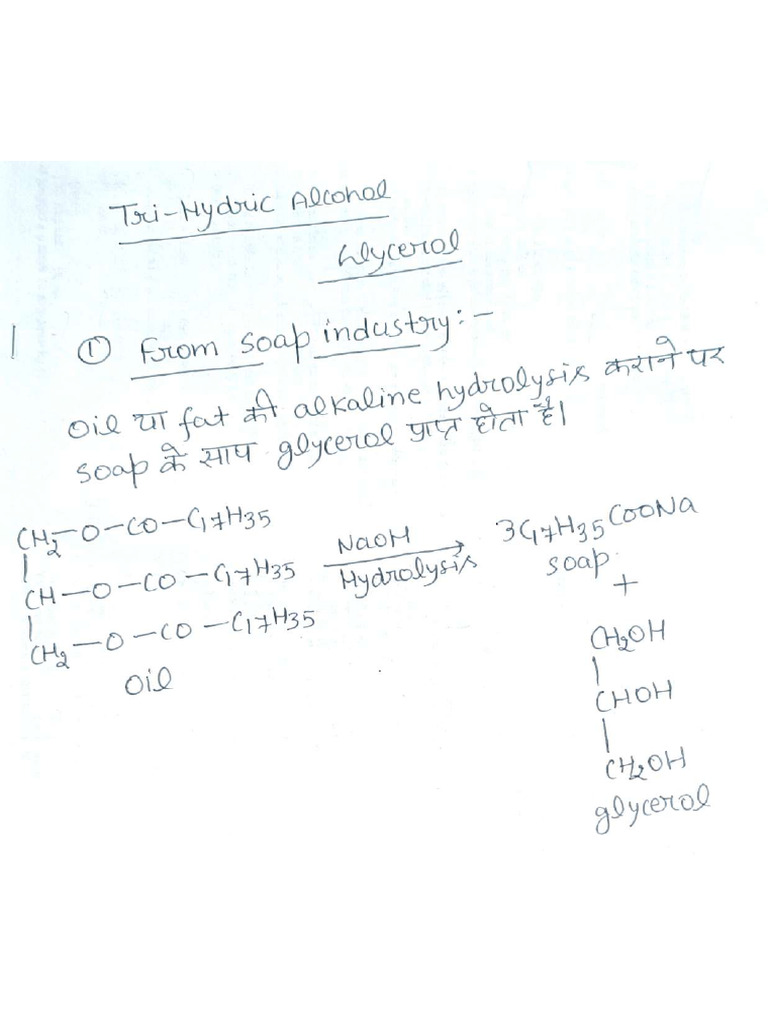 Tri-Hydric Alcohol
Glycerol
① From soap industry:-
oil या fat की alkaline hydrolysis कराने पर
soap के साथ glycerol प्राप्त होता है।
CH2-O-CO-C17H35
|
CH-O-CO-C17H35
|
CH2-O-CO-C17H35
oil
NaOH
Hydrolysis
3C17H35COONa
soap
+
CH2OH
|
CHOH
|
CH2OH
glycerol